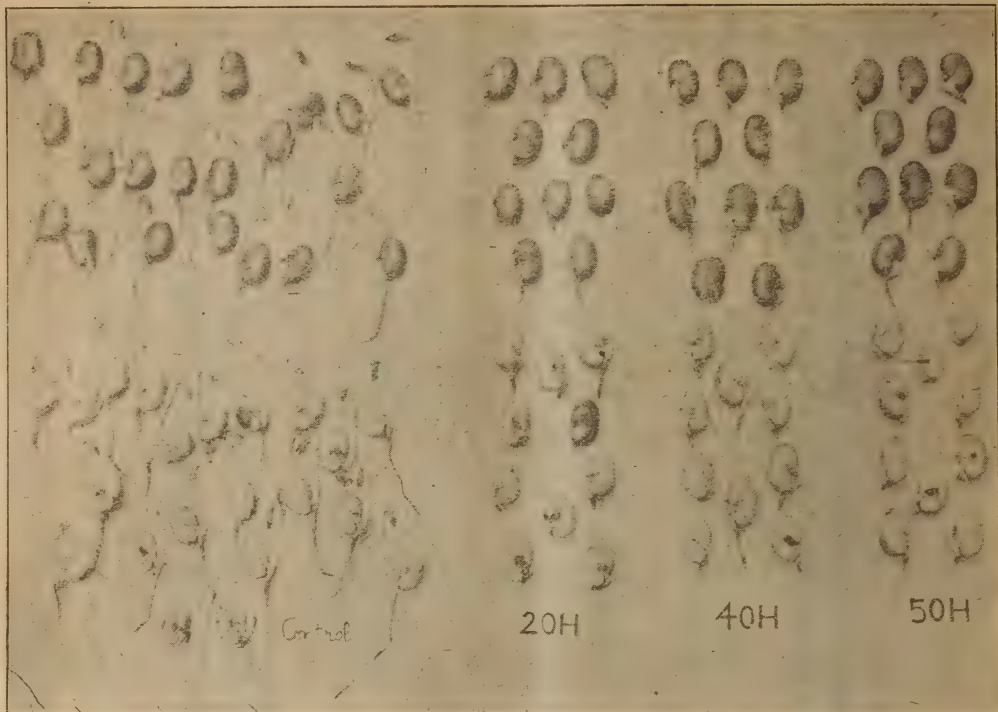 Control 20H 40H 50H